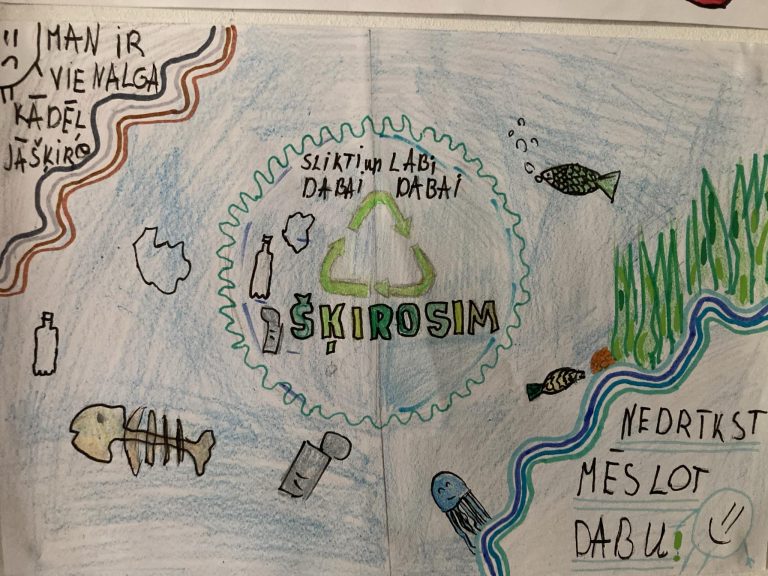 MAN iR
VIENALGA
KĀDĒĻ
JĀŠĶIRO
SLIKTi un LABi
DABAi DABAI
ŠĶIROSIM
NEDRĪKST
MĒSLOT
DABU!